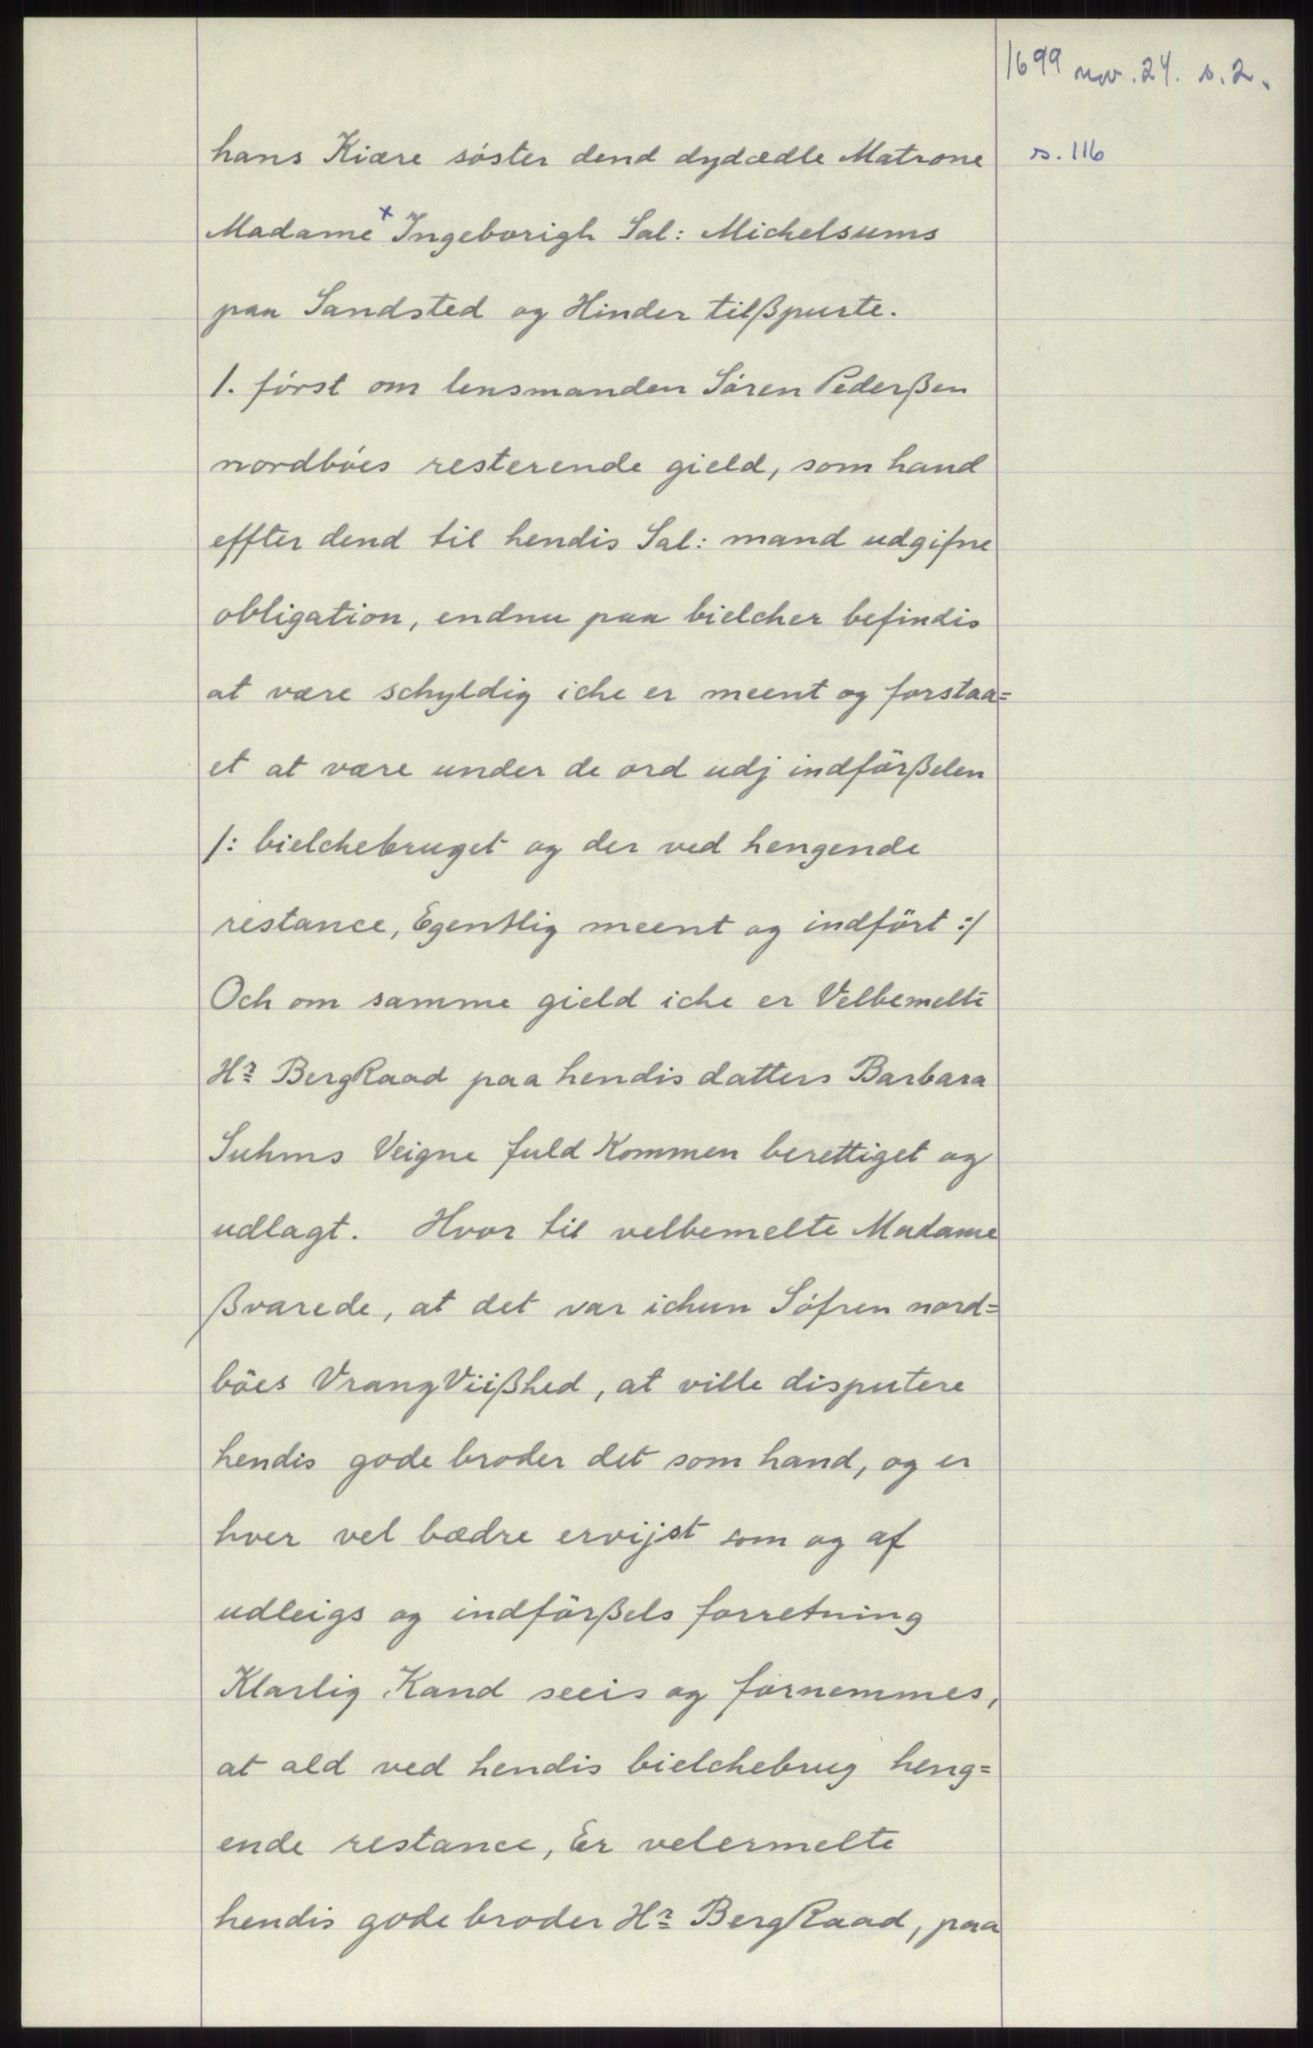 1699 nov. 24. s. 2.
s. 116
hans Kiære söster dend dydædle Matrone
Madame x Ingeborigh Sal: Michelsums
paa Sandsted og Hinder tilßpurte.
1. först om lensmanden Sören Pederßen
nordböes resterende gield, som hand
effter dend til hendis Sal: mand udgifne
obligation, endnu paa bielcher befindis
at være schyldig iche er meent og forstaa=
et at være under de ord udj indförßelen
/: bielchebruget og der ved hengende
restance, Egentlig meent og indfört :/
Och om samme gield iche er Velbemelte
Hr BergRaad paa hendis datters Barbara
Suhms Veigne fuld Kommen berettiget og
udlagt. Hvor til velbemelte Madame
ßvarede, at det var ichun Söfren nord=
böes VrangViißhed, at ville disputere
hendis gode broder det som hand, og er
hver vel bædre ervijst som og af
udleigs og indförßels forretning
Klarlig Kand seeis og fornemmes,
at ald ved hendis bielchebrug heng=
ende restance, Er velermelte
hendis gode broder Hr BergRaad, paa